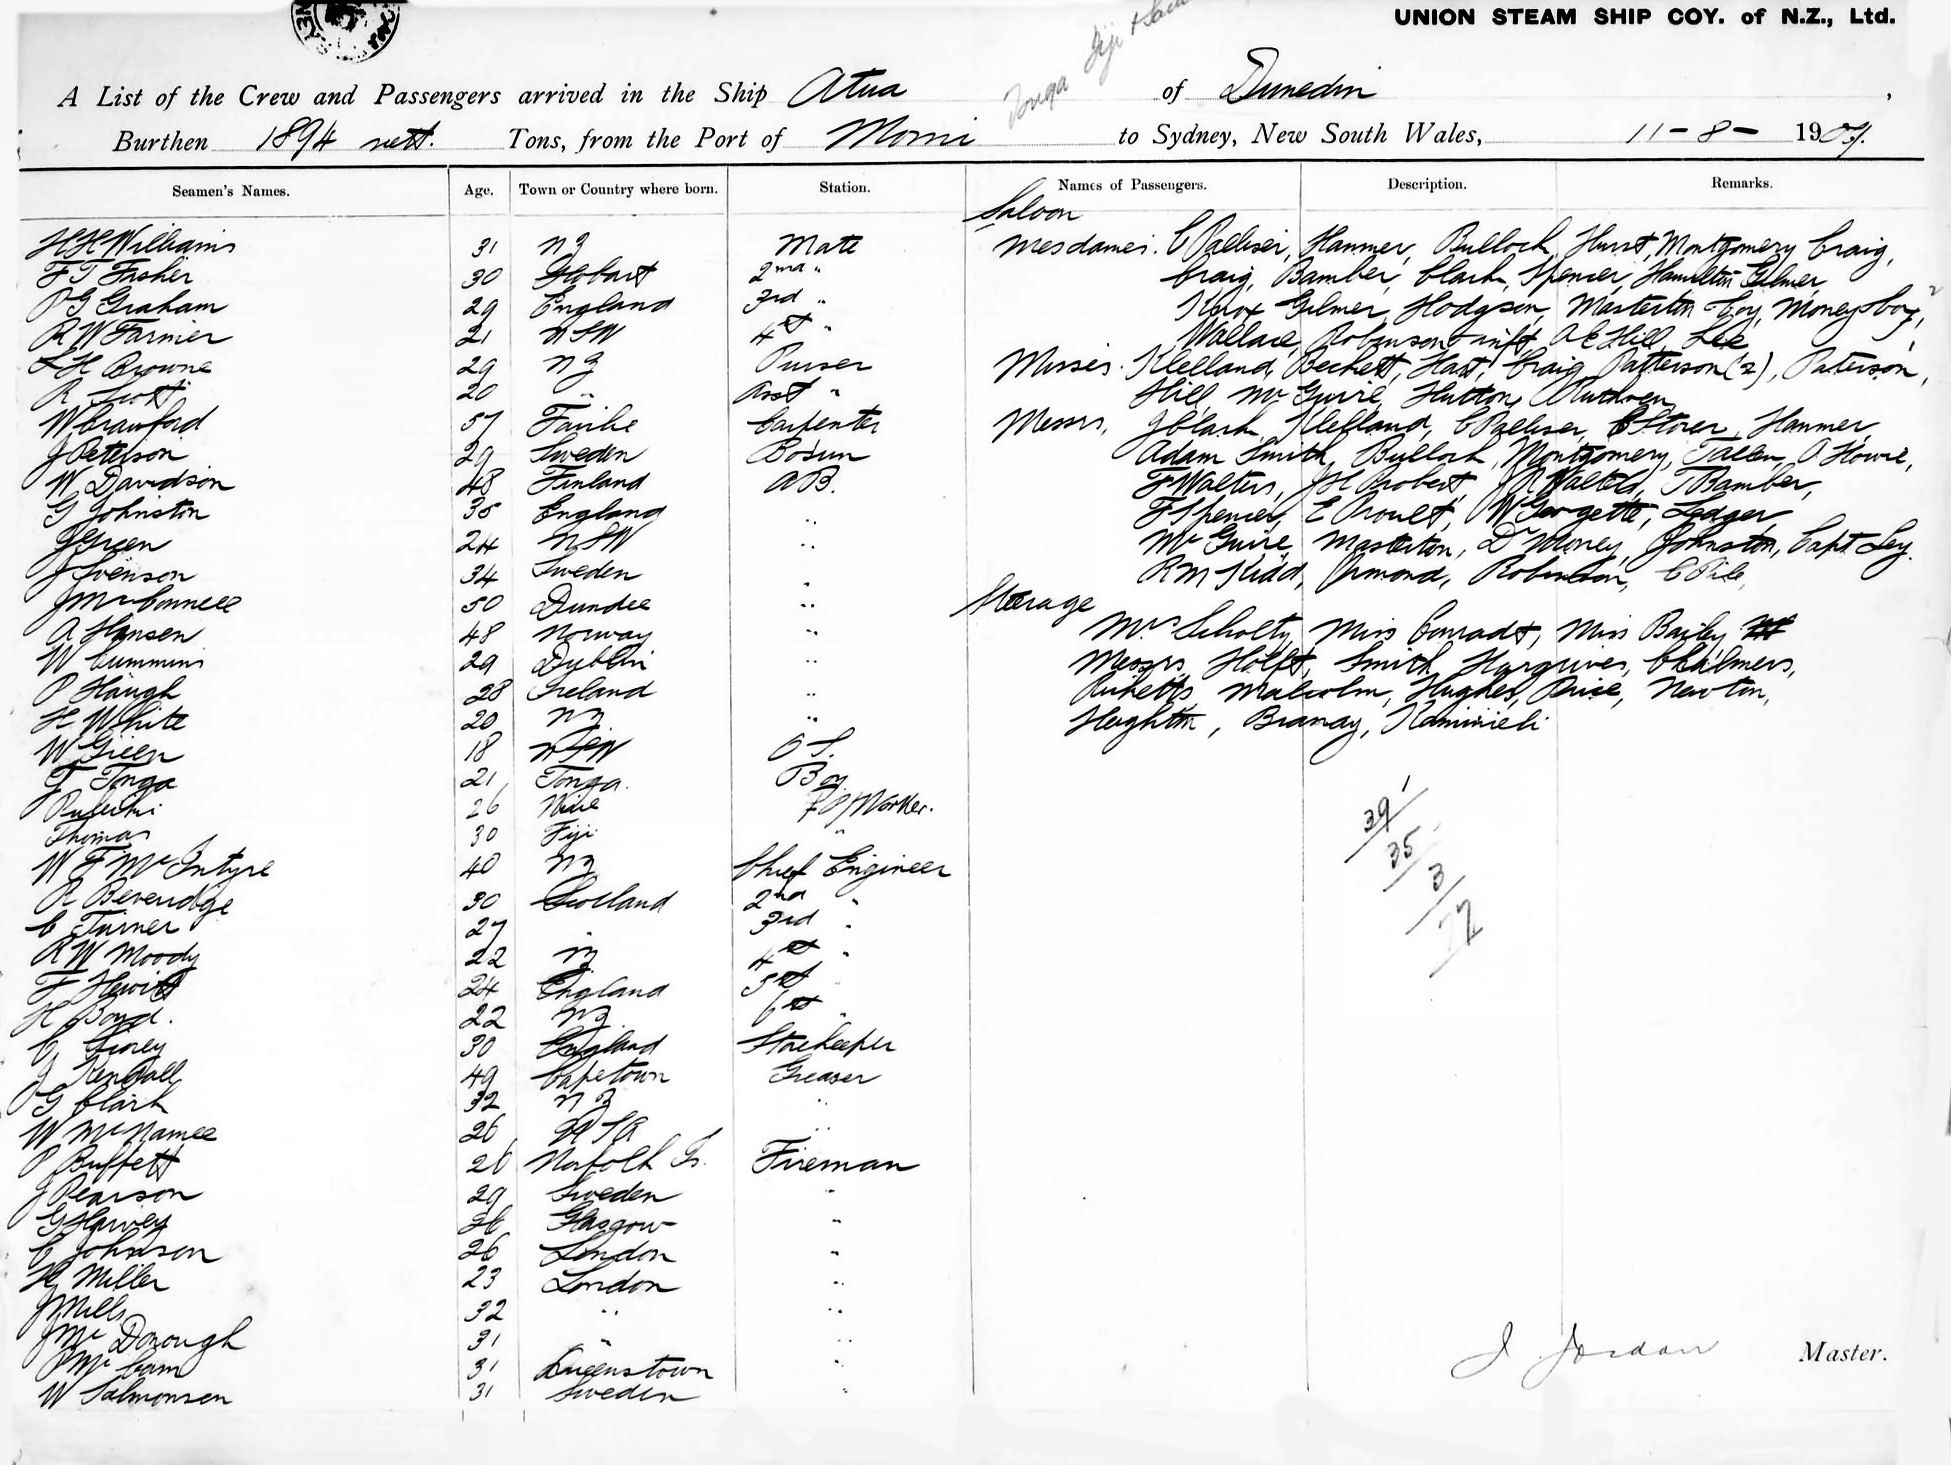 UNION STEAM SHIP COY. of N.Z., Ltd.
Tonga Fiji &
A List of the Crew and Passengers arrived in the Ship Atua of Dunedin,
Burthen 1894 nett. Tons, from the Port of to Sydney, New South Wales, 11-8- 1907.
Seamen's Names. Age. Town or Country where born. Station. Names of Passengers. Description. Remarks.
H H Williams 31 NZ Mate
F T Fasher 30 Hobart 2nd "
P G Graham 29 England 3rd "
R W Farmer 21 NSW 4th "
L H Browne 29 NZ Purser
R Scott 20 " Asst "
W Crawford 57 Carpenter
J Peterson 29 Sweden Bosun
W Davidson 48 Finland AB.
G Johnston 35 England "
J Green 24 NSW "
J Svenson 34 Sweden "
J McConnell 50 Dundee "
A Hansen 48 Norway "
W Cummins 29 Dublin "
P Haugh 28 Ireland "
H White 20 NZ "
W Green 18 NSW O S.
F Tonga 21 Tonga. Boy
26 Niue Worker.
Thomas 30 Fiji "
W F McIntyre 40 NZ Chief Engineer
R Beveridge 30 Scotland 2nd "
C Turner 27 " 3rd "
R W Moody 22 NZ 4th "
F Hewitt 24 England 5th "
H Boyd. 22 NZ. 6th "
C 30 England Storekeeper
J Kendall 49 Capetown Greaser
G Clark 32 NZ "
W McNamee 26 USA "
P Buffett 26 Norfolk Is. Fireman
J Pearson 29 Sweden "
G Harvey 26 Glasgow "
C Johnson 26 London "
H Miller 23 London "
J Mills 32 " "
J McDonough 31 " "
P McCam 31 Queenstown "
W Salmonsen 31 Sweden "
Saloon
Mesdames. C Palliser, Hammer, Bulloch, Hurst, Montgomery Craig,
Craig, Bamber, Clark, Spencer, Hamilton Gilmer,
Knox Gilmer, Hodgson, Masterton & boy, Money & boy,
Wallace, Robinson, Swift, A E Hill, Lee
Misses. Klelland, Beckett, Hast, Craig, Patterson (2), Paterson,
Hill, McGuire, Hutton, Ruthven
Messrs. J Clark, Klelland, C Palliser, C Storer, Hammer,
Adam Smith, Bulloch, Montgomery, Tallen, A Howie,
F Walters, J H Probert, T Bamber,
F Spencer, E Proult, W Georgette, Ledger,
McGuire, Masterton, Dr Money, Johnston, Capt Ley.
R M Kidd, Ormond, Robinson, C Pile,
Steerage
Mrs Scholty, Miss Conradt, Miss Bailey
Messrs, Holft, Smith, Hargrives, Chalmers,
Ricketts, Malcolm, Hughes, Price, Newton,
Heighton, Branay,
39
35
3
77
J Jordan Master.